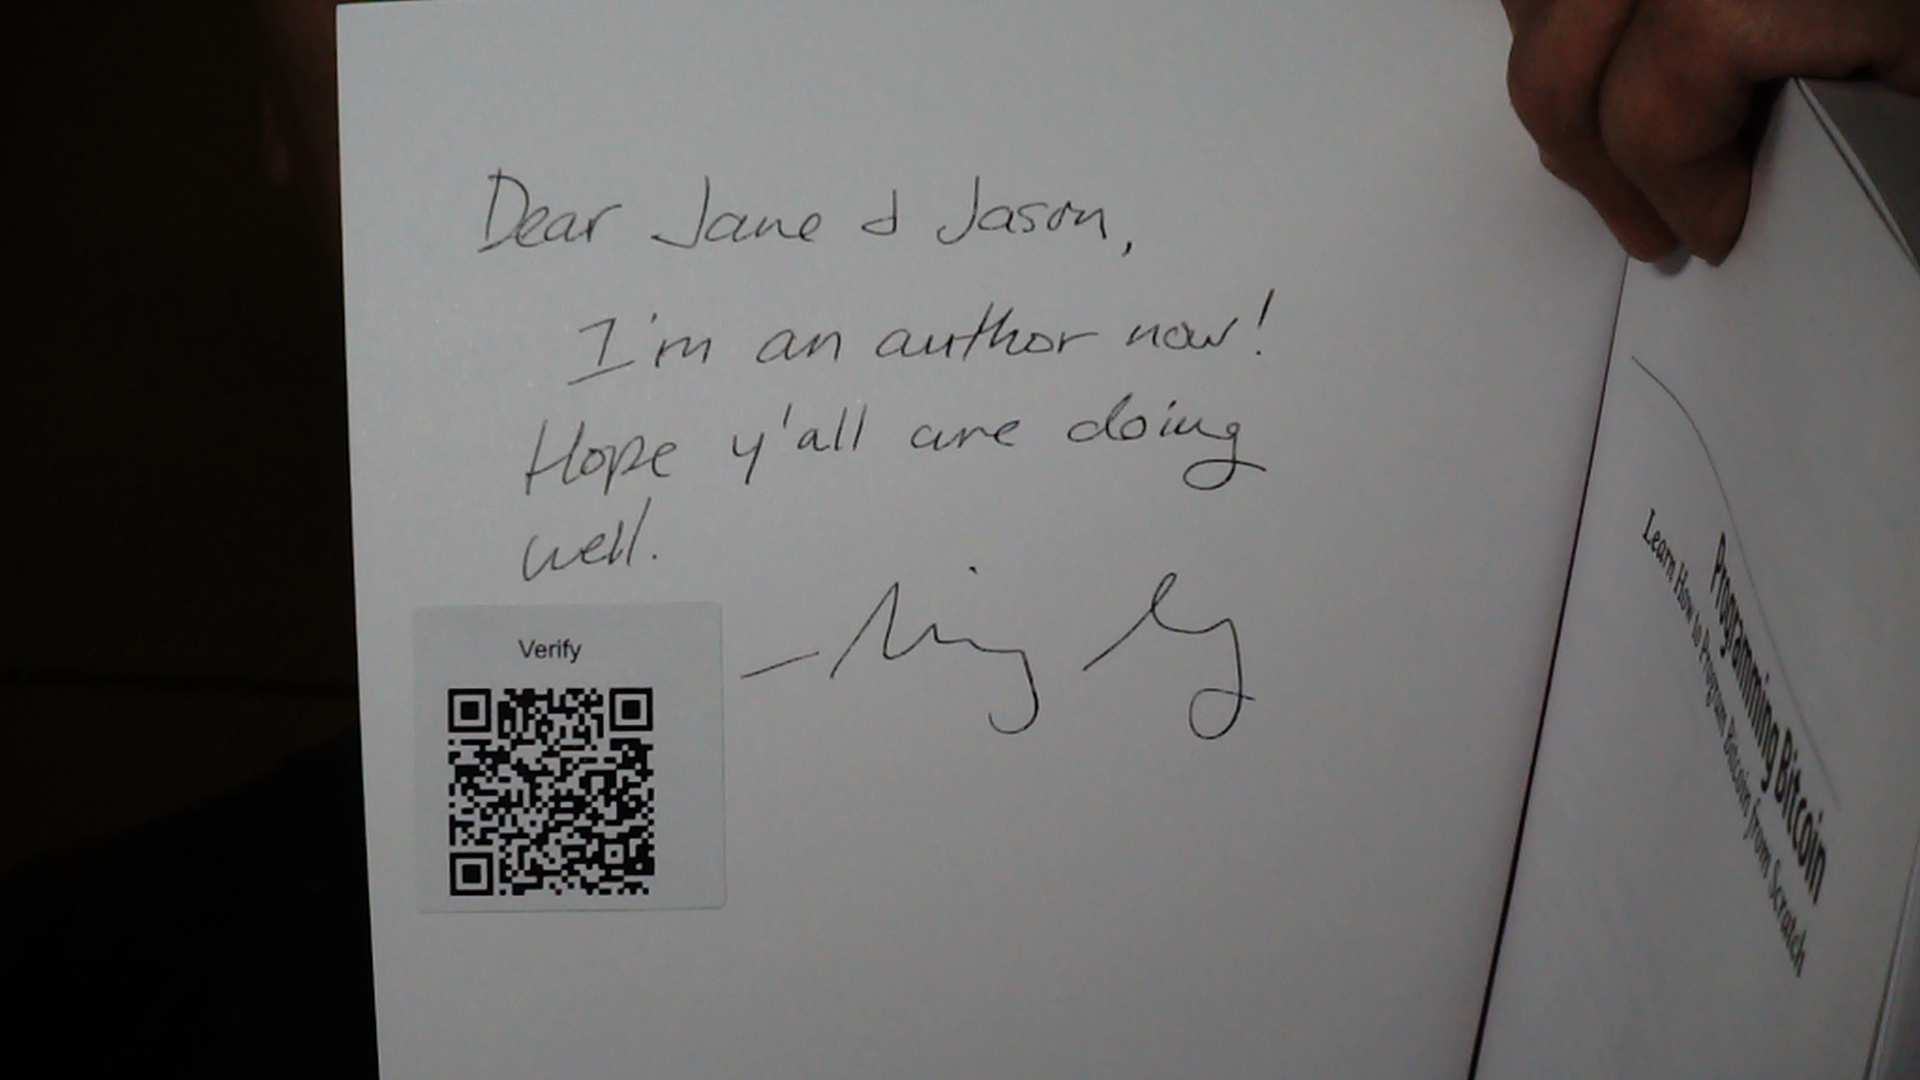 Dear Jane & Jason,
I'm an author now!
Hope y'all are doing
well.
Verify
Programming Bitcoin
Learn How to Program Bitcoin from Scratch